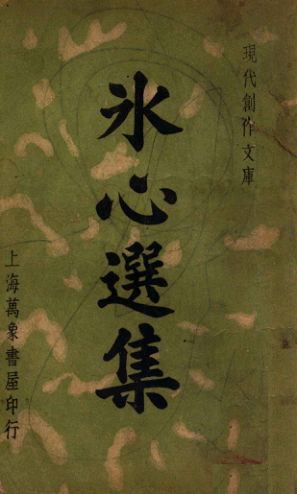 現代創作文庫
氷心選集
上海萬象書屋印行